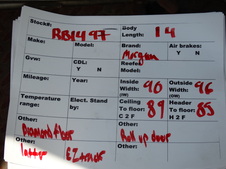 Stock#: RB1497 Body Length: 14
Make: Model: Brand: Morgan Air brakes: Y N
Gvw: CDL: Y N Roofed Model:
Mileage: Year: Inside Width: 90 (IW) Outside Width: 96 (OW)
Temperature range: Elect. Stand by: Ceiling To floor: 89 C 2 F Header To floor: 85 H 2 F
Other: Diamond floor Other: Roll up door
Other: Other: